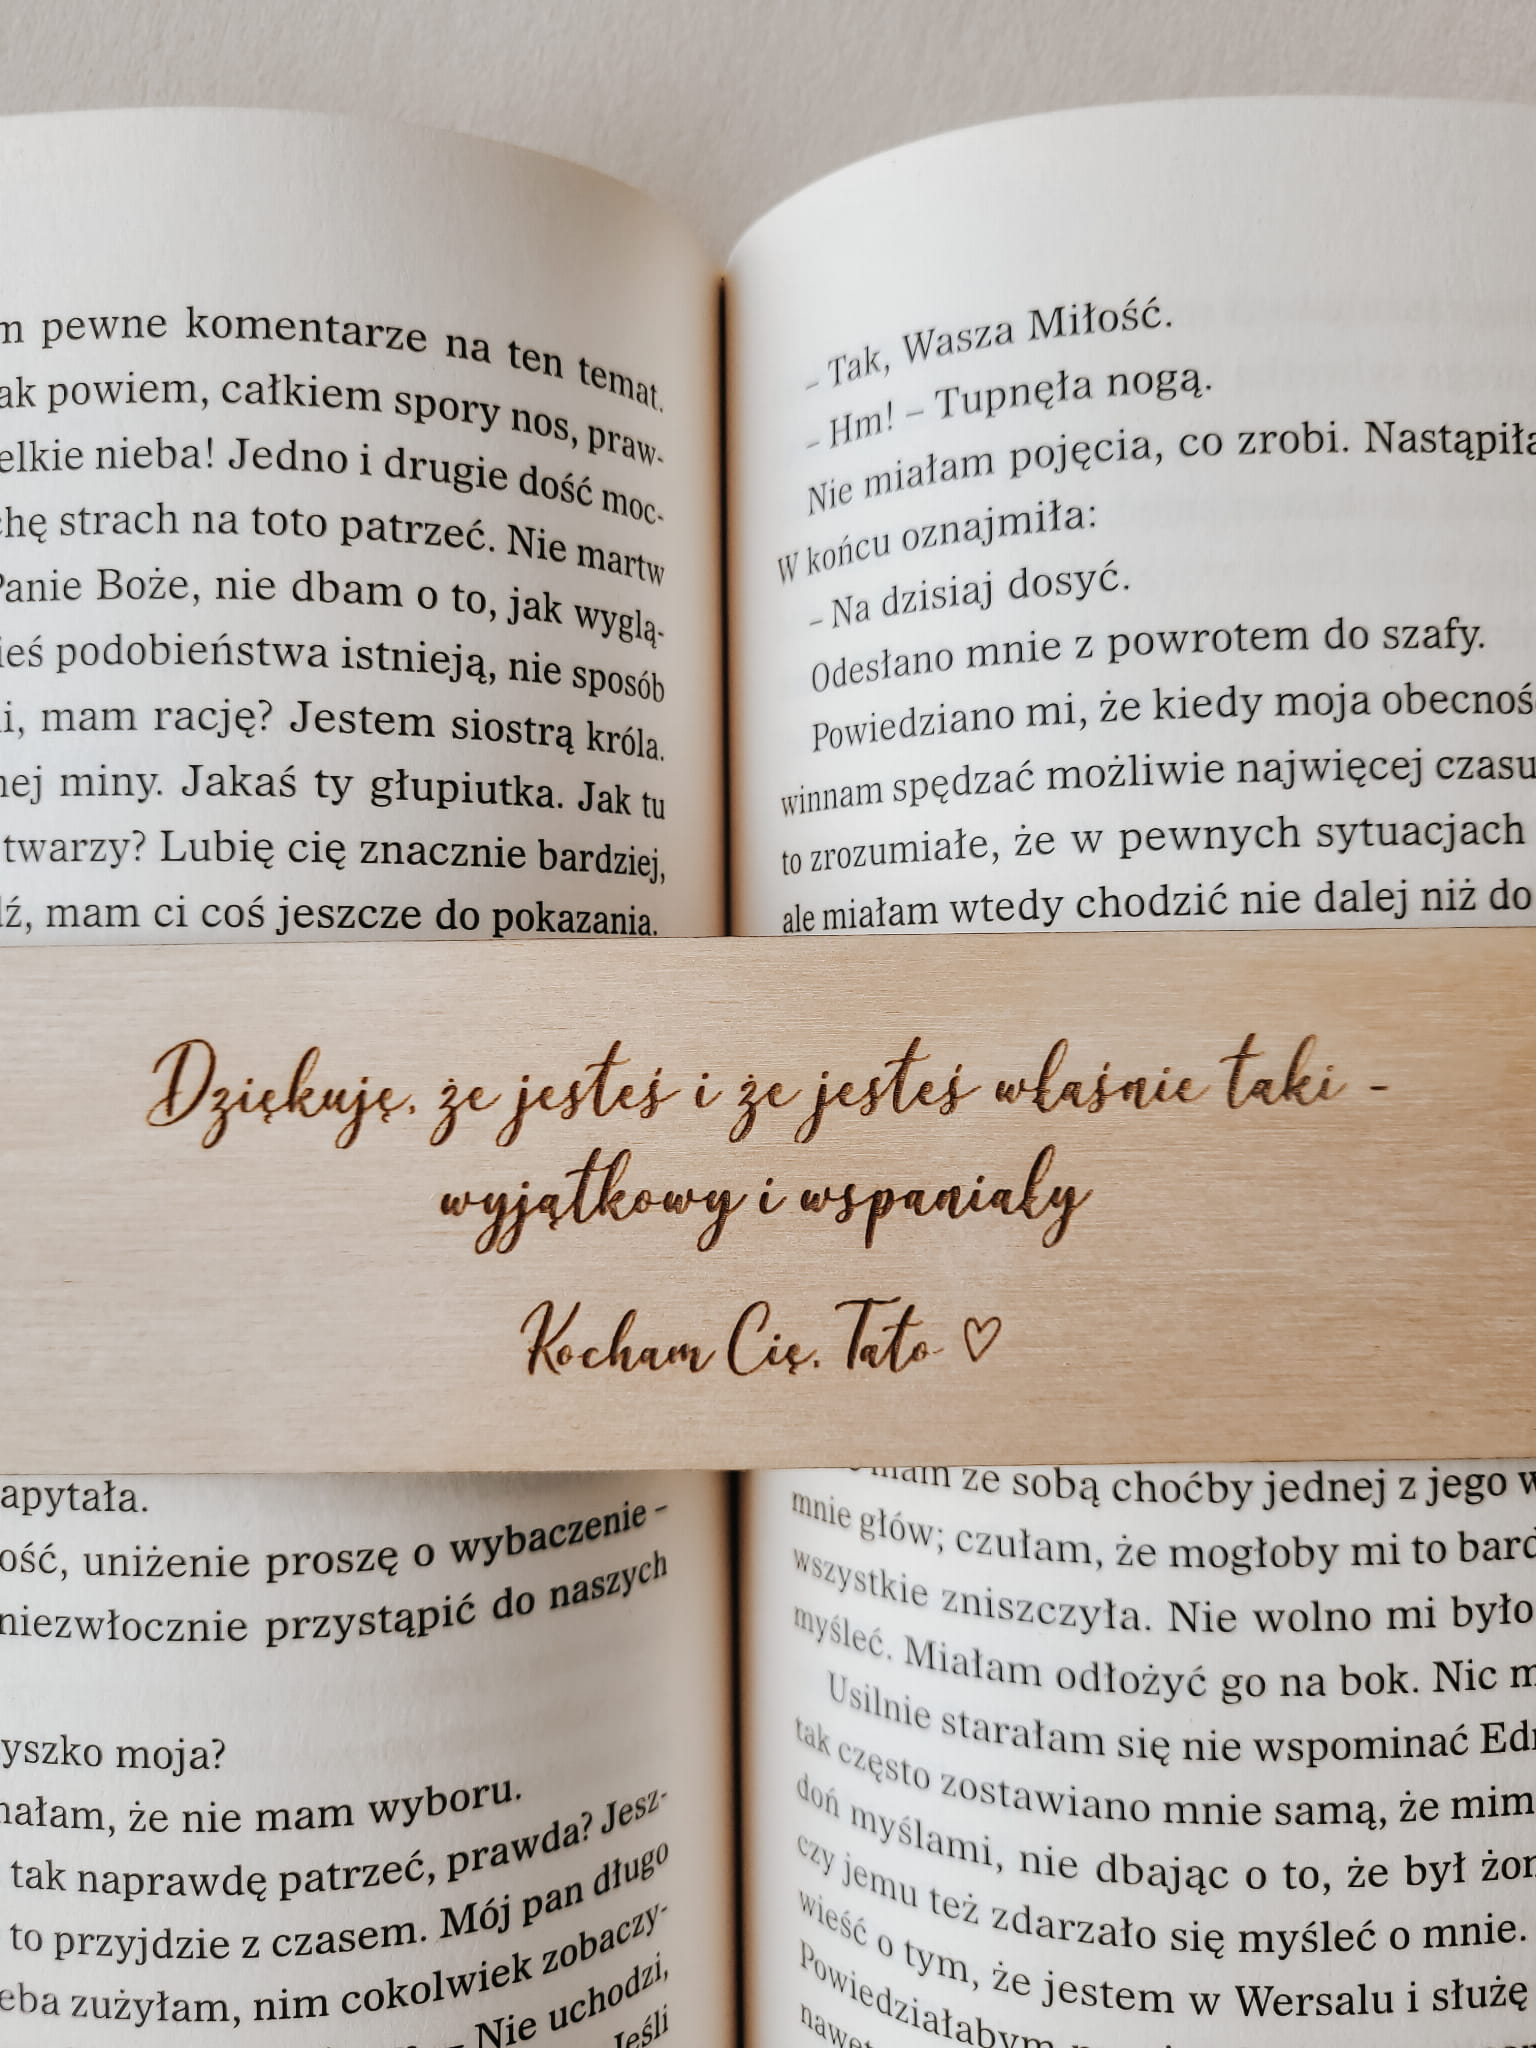 m pewne komentarze na ten temat.
ak powiem, całkiem spory nos, praw-
elkie nieba! Jedno i drugie dość moc-
chę strach na toto patrzeć. Nie martw
Panie Boże, nie dbam o to, jak wyglą-
ieś podobieństwa istnieją, nie sposób
i, mam rację? Jestem siostrą króla.
nej miny. Jakaś ty głupiutka. Jak tu
twarzy? Lubię cię znacznie bardziej,
dź, mam ci coś jeszcze do pokazania.
– Tak, Wasza Miłość.
– Hm! – Tupnęła nogą.
Nie miałam pojęcia, co zrobi. Nastąpiła
W końcu oznajmiła:
– Na dzisiaj dosyć.
Odesłano mnie z powrotem do szafy.
Powiedziano mi, że kiedy moja obecnoś
winnam spędzać możliwie najwięcej czasu
to zrozumiałe, że w pewnych sytuacjach
ale miałam wtedy chodzić nie dalej niż do
Dziękuję, że jesteś i że jesteś właśnie taki -
wyjątkowy i wspaniały
Kocham Cię, Tato ♡
apytała.
ość, uniżenie proszę o wybaczenie –
niezwłocznie przystąpić do naszych
yszko moja?
nałam, że nie mam wyboru.
tak naprawdę patrzeć, prawda? Jesz-
to przyjdzie z czasem. Mój pan długo
eba zużyłam, nim cokolwiek zobaczy-
– Nie uchodzi,
Jeśli
mam ze sobą choćby jednej z jego w
mnie głów; czułam, że mogłoby mi to bard
wszystkie zniszczyła. Nie wolno mi było
myśleć. Miałam odłożyć go na bok. Nic m
Usilnie starałam się nie wspominać Ed
tak często zostawiano mnie samą, że mim
doń myślami, nie dbając o to, że był żon
czy jemu też zdarzało się myśleć o mnie.
wieść o tym, że jestem w Wersalu i służę
Powiedziałabym
nawet